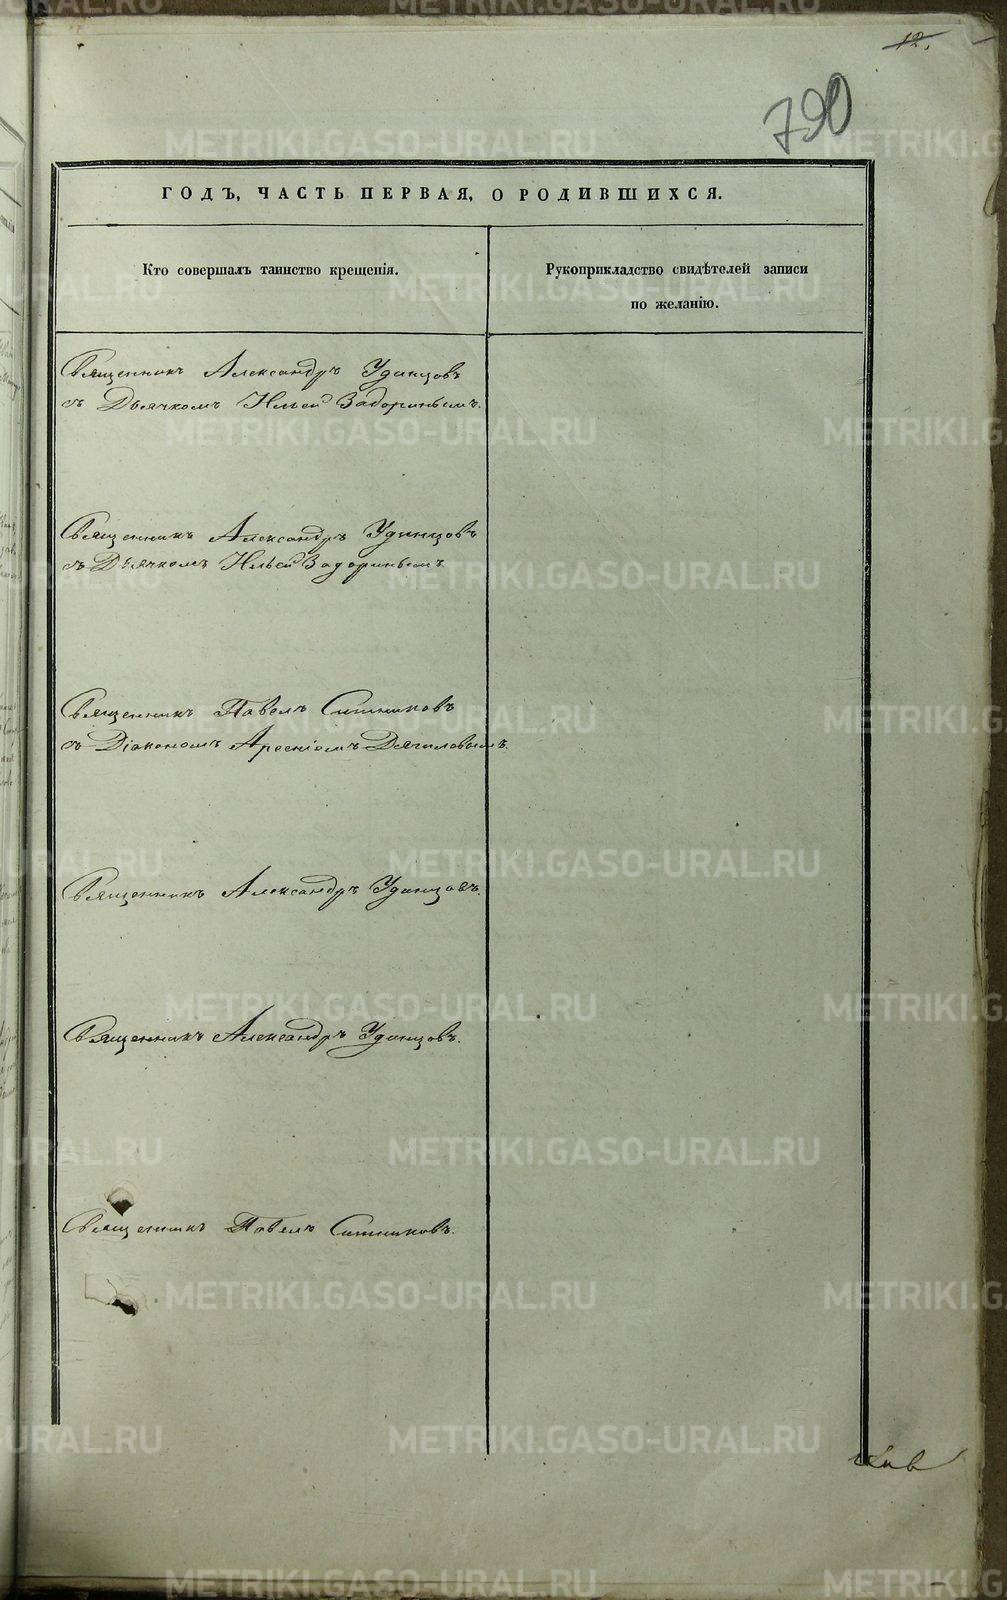 12.
790
ГОДЪ, ЧАСТЬ ПЕРВАЯ, О РОДИВШИХСЯ.
Кто совершалъ таинство крещенія.
Рукоприкладство свидѣтелей записи
по желанію.
Священникъ Александръ Удинцовъ
съ Дьячкомъ Ильей Задоринымъ.
Священникъ Александръ Удинцовъ
съ Дьячкомъ Ильей Задоринымъ
Священникъ Павелъ Ситниковъ
съ Діакономъ Арсеніемъ Дягилевымъ.
Священникъ Александръ Удинцовъ.
Священникъ Александръ Удинцовъ.
Священникъ Павелъ Ситниковъ.
METRIKI.GASO-URAL.RU